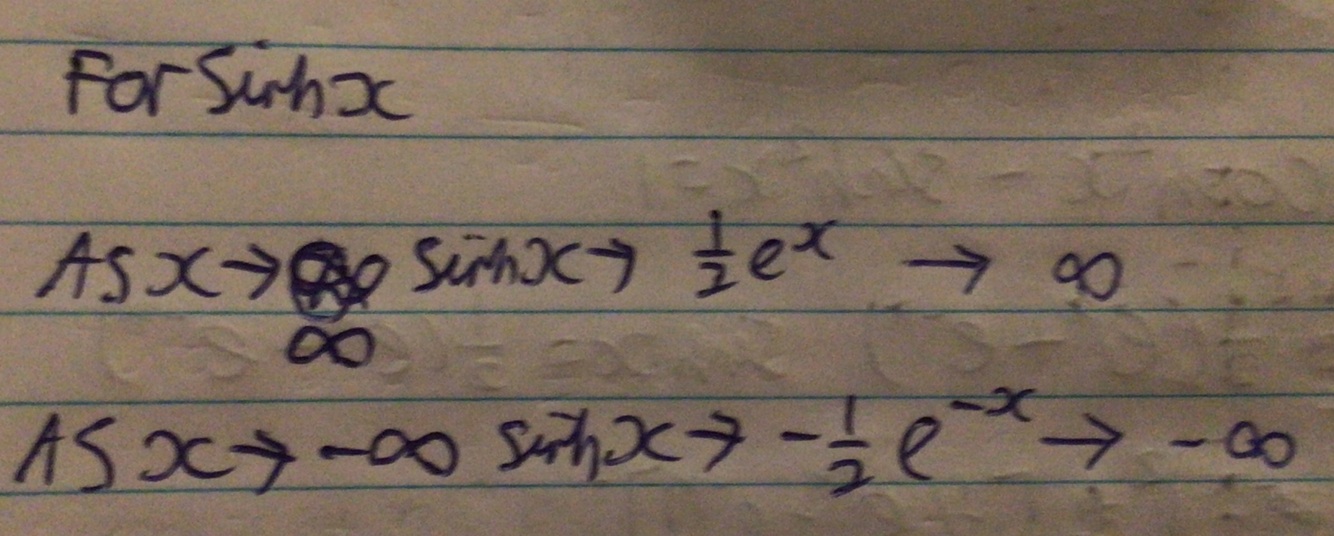 For Sinh x
As x → ∞ Sinh x → 1/2 e^x → ∞
As x → -∞ Sinh x → -1/2 e^-x → -∞